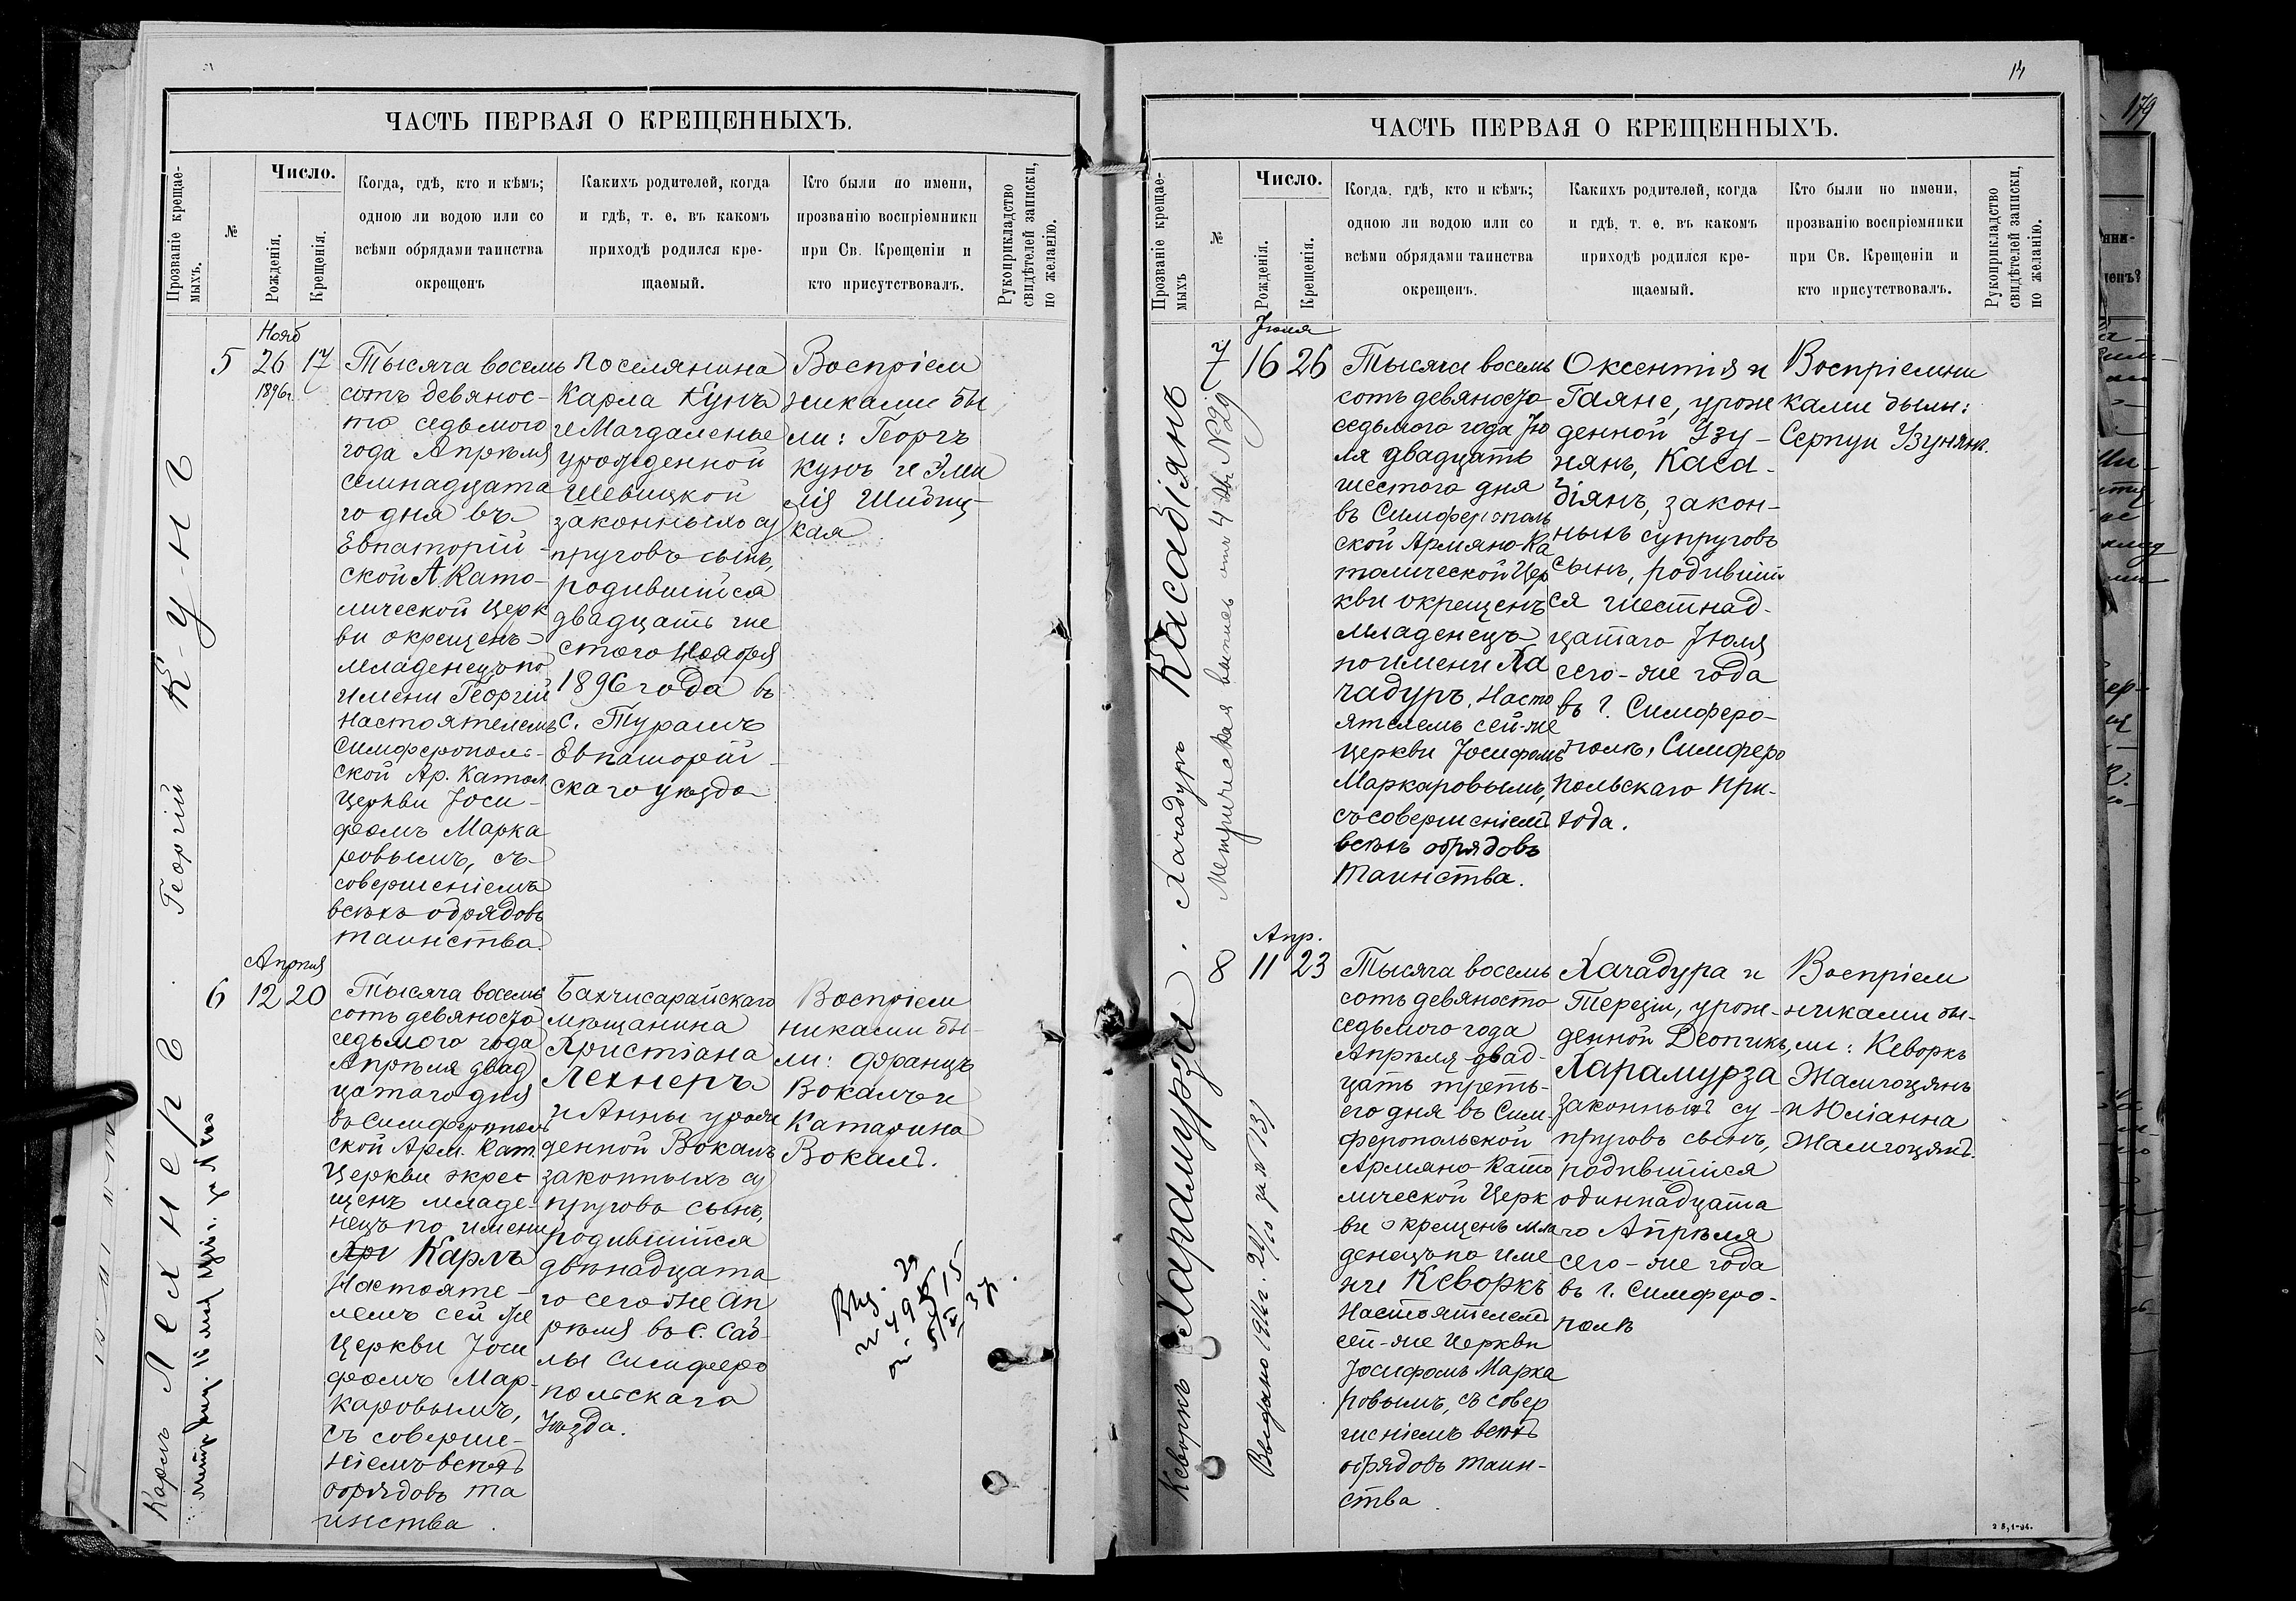 ЧАСТЬ ПЕРВАЯ О КРЕЩЕННЫХЪ.
Прозваніе крещае-
мыхъ.
№
Число.
Рожденія.
Крещенія.
Когда, гдѣ, кто и кѣмъ;
одною ли водою или со
всѣми обрядами таинства
окрещенъ
Какихъ родителей, когда
и гдѣ, т. е. въ какомъ
приходѣ родился кре-
щаемый.
Кто были по имени,
прозванію воспріемники
при Св. Крещеніи и
кто присутствовалъ.
Рукоприкладство
свидѣтелей записки,
по желанію.
Георгій Кунъ
5
Нояб
26
1896г.
17
Тысяча восемь
сотъ девянос-
то седьмого
года Апрѣля
семнадцата
го дня въ
Евпаторій-
ской А. Като-
лической Церк
ви окрещенъ
младенецъ по
имени Георгій
Настоятелемъ
Симферополь-
ской Ар. Катол
Церкви Іоси-
фомъ Марка
ровымъ, съ
совершеніемъ
всѣхъ обрядовъ
таинства
Поселянина
Карла Кунъ
и Магдалены
урожденной
Шевицкой
законныхъ су
пруговъ сынъ,
родившійся
двадцать ше
стого Ноября
1896 года въ
с. Турашъ
Евпаторій-
скаго уѣзда
Воспріем
никами бы
ли: Георгъ
Кунъ и Эми
лія Шибиц-
кая
Карлъ Лехнеръ
6
Апрѣля
12
20
Тысяча восемь
сотъ девяносто
седьмого года
Апрѣля двад
цатаго дня
въ Симферополь
ской Арм. Кат.
Церкви окре-
щенъ младе-
нецъ по имени
Хри Карлъ
Настояте-
лемъ сей же
Церкви Іоси
фомъ Мар-
каровымъ,
съ соверше-
ніемъ всѣхъ
обрядовъ та
инства.
Бахчисарайскаго
мѣщанина
Христіана
Лехнеръ
и Анны урож
денной Вокалъ
законныхъ су
пруговъ сынъ,
родившійся
двѣнадцата
го сего же Ап
рѣля въ с. Саб-
лы Симферо
польскаго
Уѣзда.
Воспріем
никами бы-
ли: Францъ
Вокалъ и
Катарина
Вокалъ.
14
ЧАСТЬ ПЕРВАЯ О КРЕЩЕННЫХЪ.
Прозваніе крещае-
мыхъ
№
Число.
Рожденія.
Крещенія.
Когда, гдѣ, кто и кѣмъ;
одною ли водою или со
всѣми обрядами таинства
окрещенъ.
Какихъ родителей, когда
и гдѣ, т. е. въ какомъ
приходѣ родился кре-
щаемый.
Кто были по имени,
прозванію воспріемники
при Св. Крещеніи и
кто присутствовалъ.
Рукоприкладство
свидѣтелей записки,
по желанію.
Хачадуръ Касабіянъ
Метрическая выпись
7
Іюля
16
26
Тысяча восемь
сотъ девяносто
седьмого года Ію
ля двадцать
шестого дня
въ Симферополь
ской Армяно-Ка
толической Цер
кви окрещенъ
младенецъ
по имени Ха
чадуръ. Насто
ятелемъ сей-же
церкви Іосифомъ
Маркаровымъ,
съ совершеніемъ
всѣхъ обрядовъ
таинства.
Оксентія и
Гаяне, урож
денной Узу-
нянъ, Каса-
біянъ, закон-
ныхъ супруговъ
сынъ, родивший
ся шестнад-
цатаго Іюля
сего-же года
въ г. Симферо-
полѣ, Симферо
польскаго при-
хода.
Воспріемни
ками были:
Серпуи Узунянъ.
Кеворкъ Харамурза
8
Апр.
11
23
Тысяча восемь
сотъ девяносто
седьмого года
Апрѣля двад-
цать треть-
его дня въ Сим
феропольской
Армяно-Като
лической Церк
ви окрещенъ мла
денецъ по име
ни Кеворкъ
Настоятелемъ
сей-же Церкви
Іосифомъ Марка
ровымъ, съ совер
шеніемъ всѣхъ
обрядовъ таин-
ства.
Хачадура и
Терезіи, урож-
денной Деопикъ,
Харамурза
законныхъ су-
пруговъ сынъ,
родившійся
одиннадцата
го Апрѣля
сего-же года
въ г. Симферо-
полѣ
Воспріем
никами бы-
ли: Кеворкъ
Жамгоцянъ
и Юліанна
Жамгоцянъ.
179